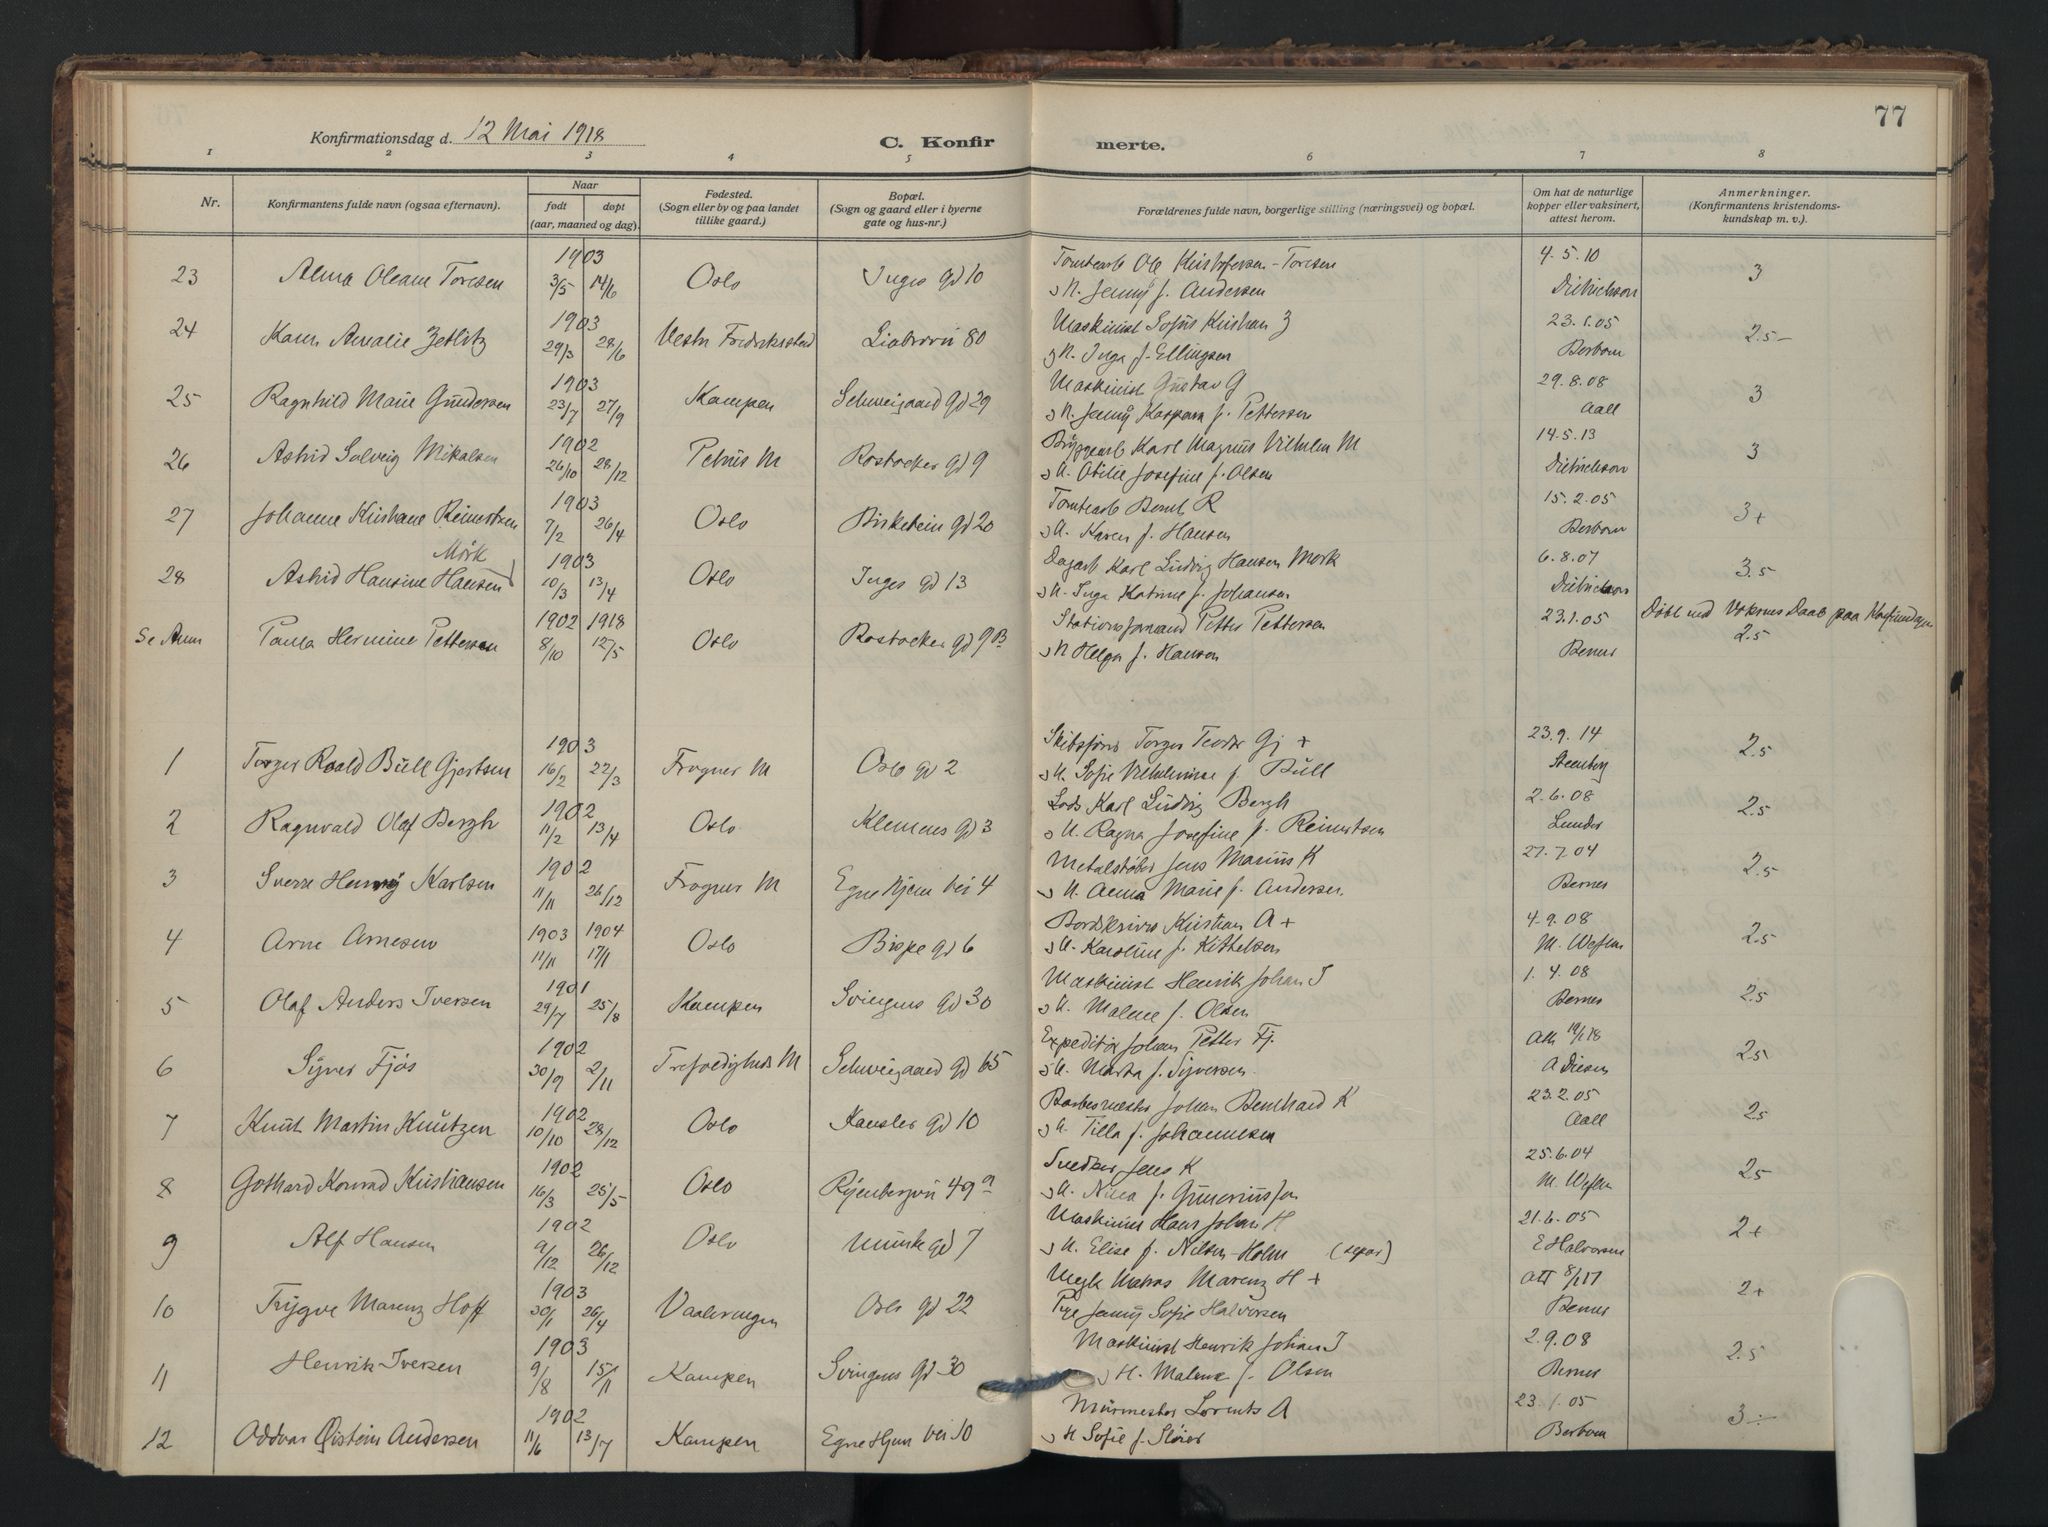 77
Konfirmationsdag d. 12 Mai 1918
C. Konfirmerte.
1 2 3 4 5 6 7 8
Nr.
Konfirmantens fulde navn (ogsaa efternavn).
Naar
født døpt
(aar, maaned og dag).
Fødested.
(Sogn eller by og paa landet
tillike gaard.)
Bopæl.
(Sogn og gaard eller i byerne
gate og hus-nr.)
Forældrenes fulde navn, borgerlige stilling (næringsvei) og bopæl.
Om hat de naturlige
kopper eller vaksinert,
attest herom.
Anmerkninger.
(Konfirmantens kristendoms-
kundskap m. v.).
1903 4.5.10
23 Alma Oleane Toresen 3/5 14/6 Oslo Inges gd 10 Tomtearb Ole Kristofersen-Toresen 3
Jenny f. Andersen Dietrichson
1903 23.1.05
24 Karen Amalie Zetlitz 29/3 28/6 Vestre Fredrikstad Liabrovn 80 Maskinist Sofus Kristian Z 2.5-
Inga f. Ellingsen Berbom
1903 29.8.08
25 Ragnhild Marie Gundersen 23/7 27/9 Kampen Schweigaard gd 29 Maskinist Gustav G 3
Jenny Kaspara f. Pettersen Aall
1902 14.5.13
26 Astrid Solveig Mikalsen 26/10 28/12 Petrus M Rostocker gd 9 Bryggearb Karl Magnus Vilhelm M 3
Otilie Josefine f. Olsen Dietrichson
1903 15.2.05
27 Johanne Kristiane Reinertsen 7/2 26/4 Oslo Birkebein gd 20 Tomtearb Bernt R 3+
Karen f. Hansen Berbom
Mørk 1903 6.8.07
28 Astrid Hansine Hansen 10/3 13/4 Oslo Inges gd 13 Dagarb Karl Ludvig Hansen Mørk 3.5
Inga Katrine f. Johansen Dietrichson
1902 1918 23.1.05 Døbt ved Voksnes Daab paa
Se Anm Paula Hermine Pettersen 8/10 12/5 Oslo Rostocker gd 9B Stationsformand Petter Pettersen 2.5
Helga f. Hansen Berner
1903 23.9.14
1 Torger Roald Bull Gjertsen 16/2 22/3 Frogner M Oslo gd 2 Skibsfører Torger Teodor Gj + 2.5
Sofie Vilhelmine f. Bull Steenberg
1902 2.6.08
2 Ragnvald Olaf Bergh 11/2 13/4 Oslo Klemens gd 3 Lods Karl Ludvig Bergh 2.5
Ragna Josefine f. Reinertsen Lunder
1902 27.7.04
3 Sverre Henry Karlsen 11/11 26/12 Frogner M Egne Hjem vei 4 Metalstøber Jens Marius K 2.5
Anna Marie f. Andersen. Berner
1903 1904 4.9.08
4 Arne Arnesen 11/11 17/1 Oslo Bispe gd 6 Bordskriver Kristian A + 2.5
Karoline f. Kittelsen
1901 1.4.08
5 Olaf Anders Iversen 29/7 25/8 Kampen Svingens gd 30 Maskinist Henrik Johan I 2.5
Malene f. Olsen Berner
1902
6 Syver Fjøs 30/9 2/11 Trefoldigheds M Schweigaard gd 65 Expeditør Johan Petter Fj. 2.5
Marta f. Syversen. A Diesen
1902 23.2.05
7 Knut Martin Knutzen 10/10 28/12 Oslo Kansler gd 10 Barbermester Johan Bernhard K 2.5
Tilla f. Johannesen Aall
1902 25.6.04
8 Gothard Konrad Kristiansen 16/3 25/5 Oslo Ryenbergvn 49a Snedker Jens K 2.5
Nina f. Gunerius
1902 21.6.05
9 Alf Hansen 9/12 26/12 Oslo Munke gd 7 Maskinist Hans Johan H 2+
Elise f. Nilsen-Holm (separ) E Halvorsen
1903
10 Trygve Marenz Hoff 30/1 26/4 Vaalerengen Oslo gd 22 Matros Marenz H + 2+
Pge Jenny Sofie Halvorsen Berner
1903 2.9.08
11 Henrik Iversen 9/8 15/11 Kampen Svingens gd 30 Maskinist Henrik Johan I 2.5
H. Malene f. Olsen Berner
1902 23.1.05
12 Oddvar Øistein Andersen 11/6 13/7 Kampen Egne Hjem vei 10 Murmester Lorents A 3÷
H Sofie f. Berbom